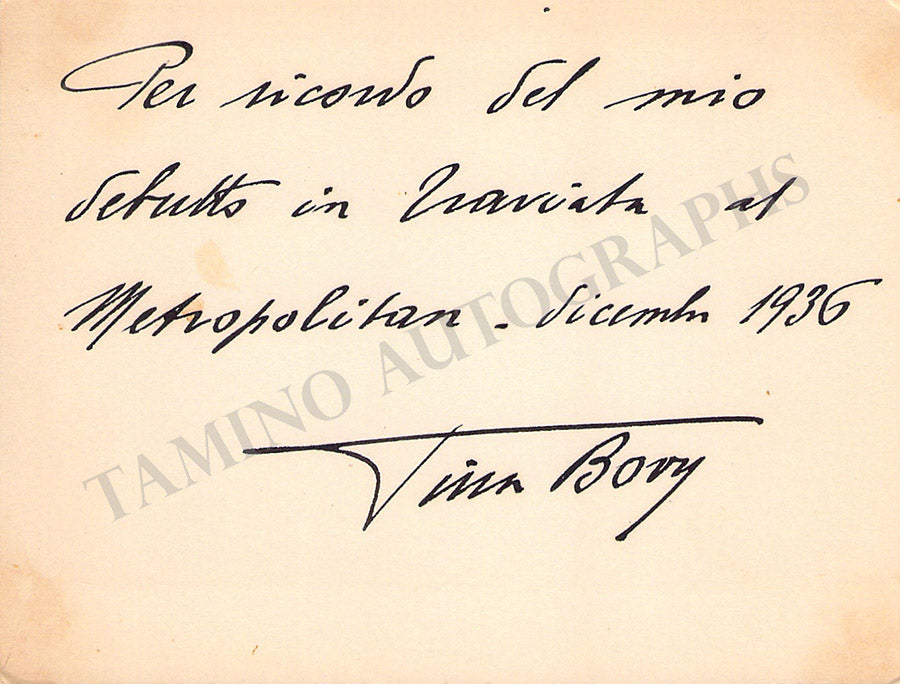 Per ricordo del mio
debutto in Traviata al
Metropolitan - dicembre 1936
Vina Bovy
TAMINO AUTOGRAPHS